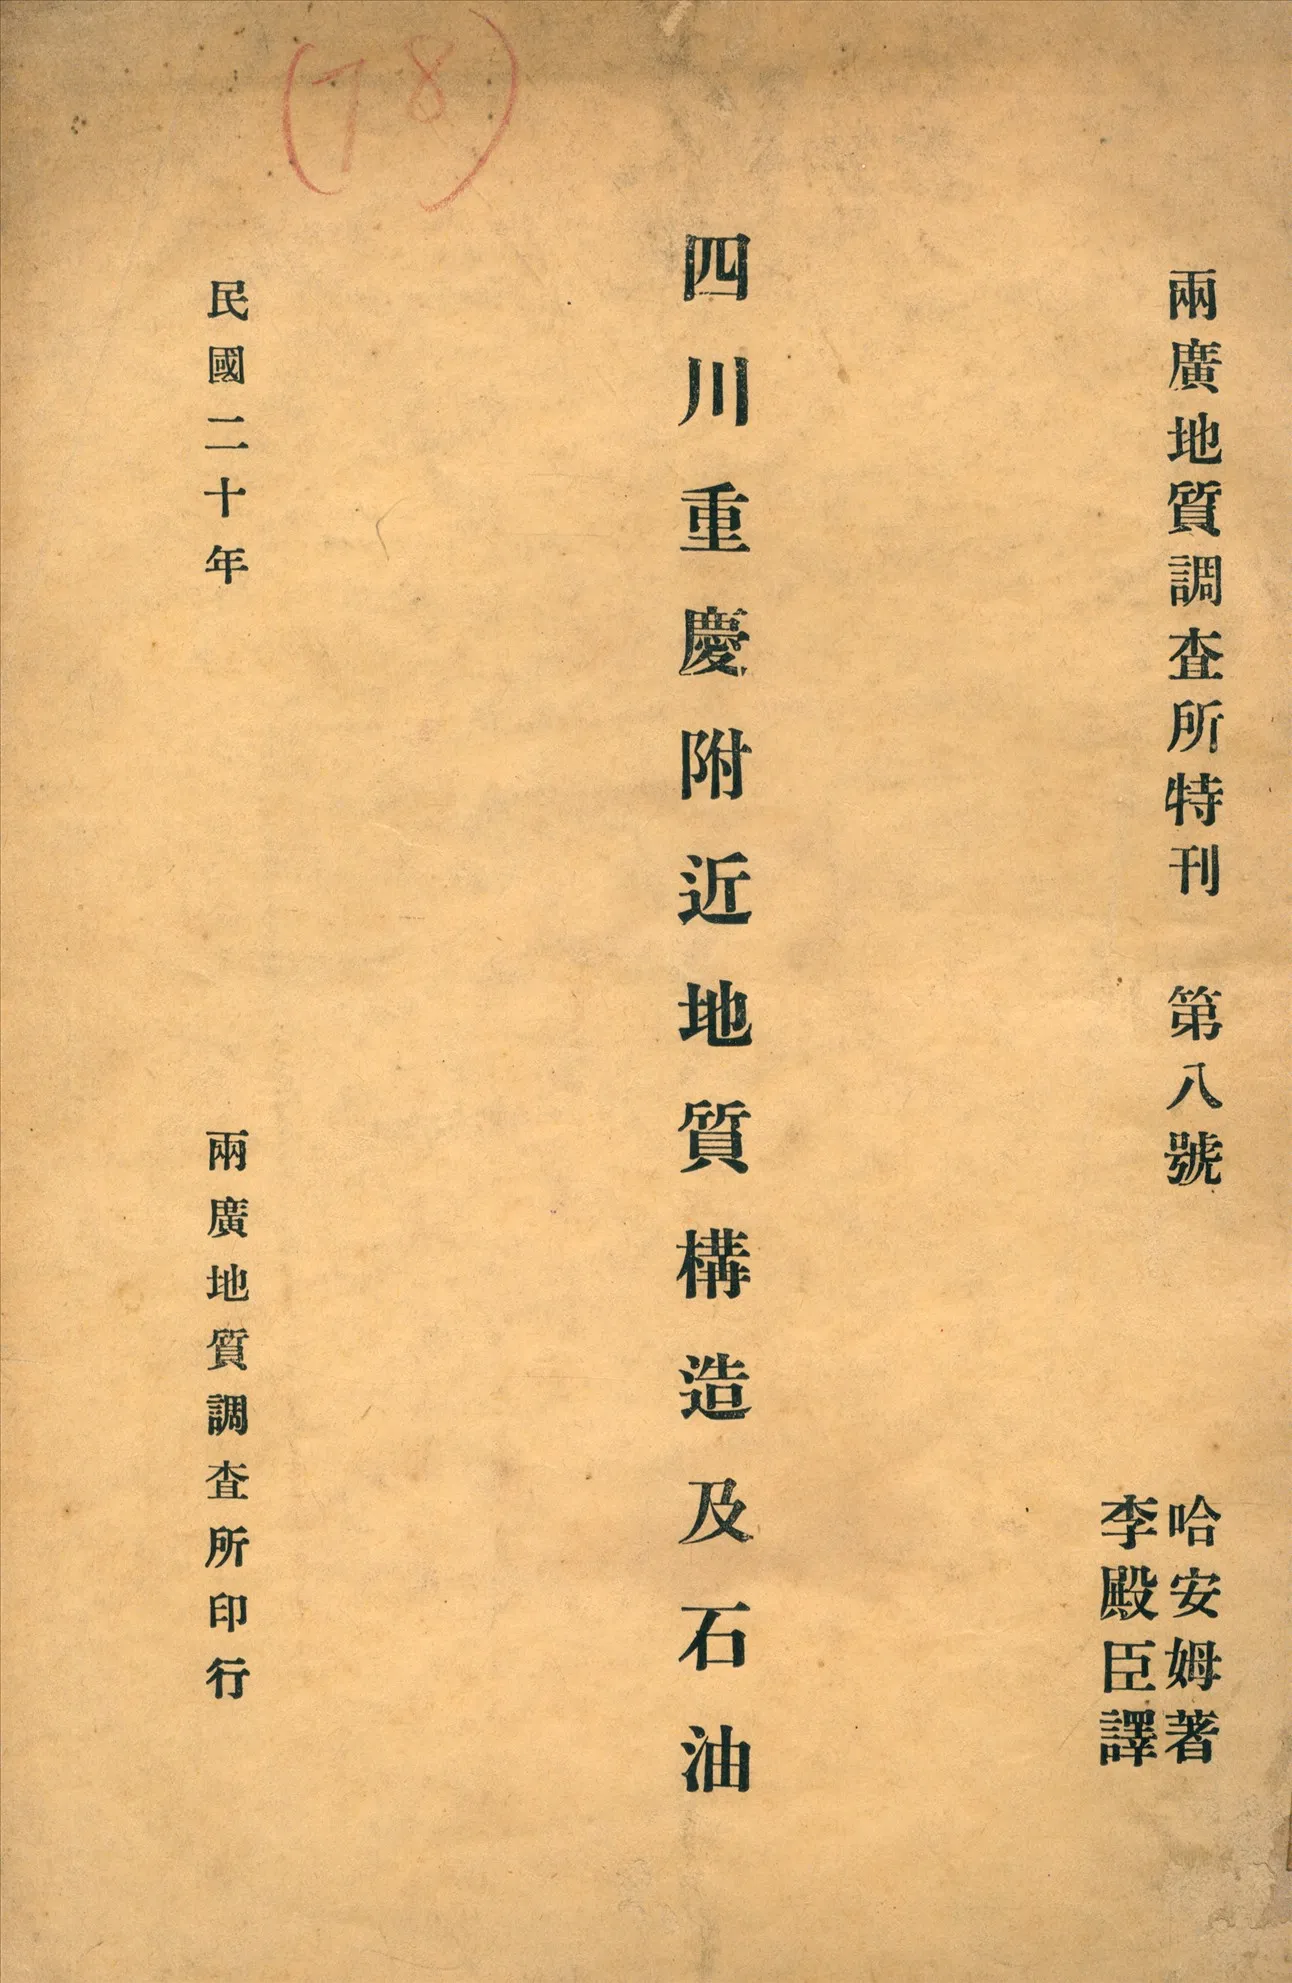 (78)
兩廣地質調查所特刊　第八號
哈安姆著
李殿臣譯
四川重慶附近地質構造及石油
民國二十年
兩廣地質調查所印行